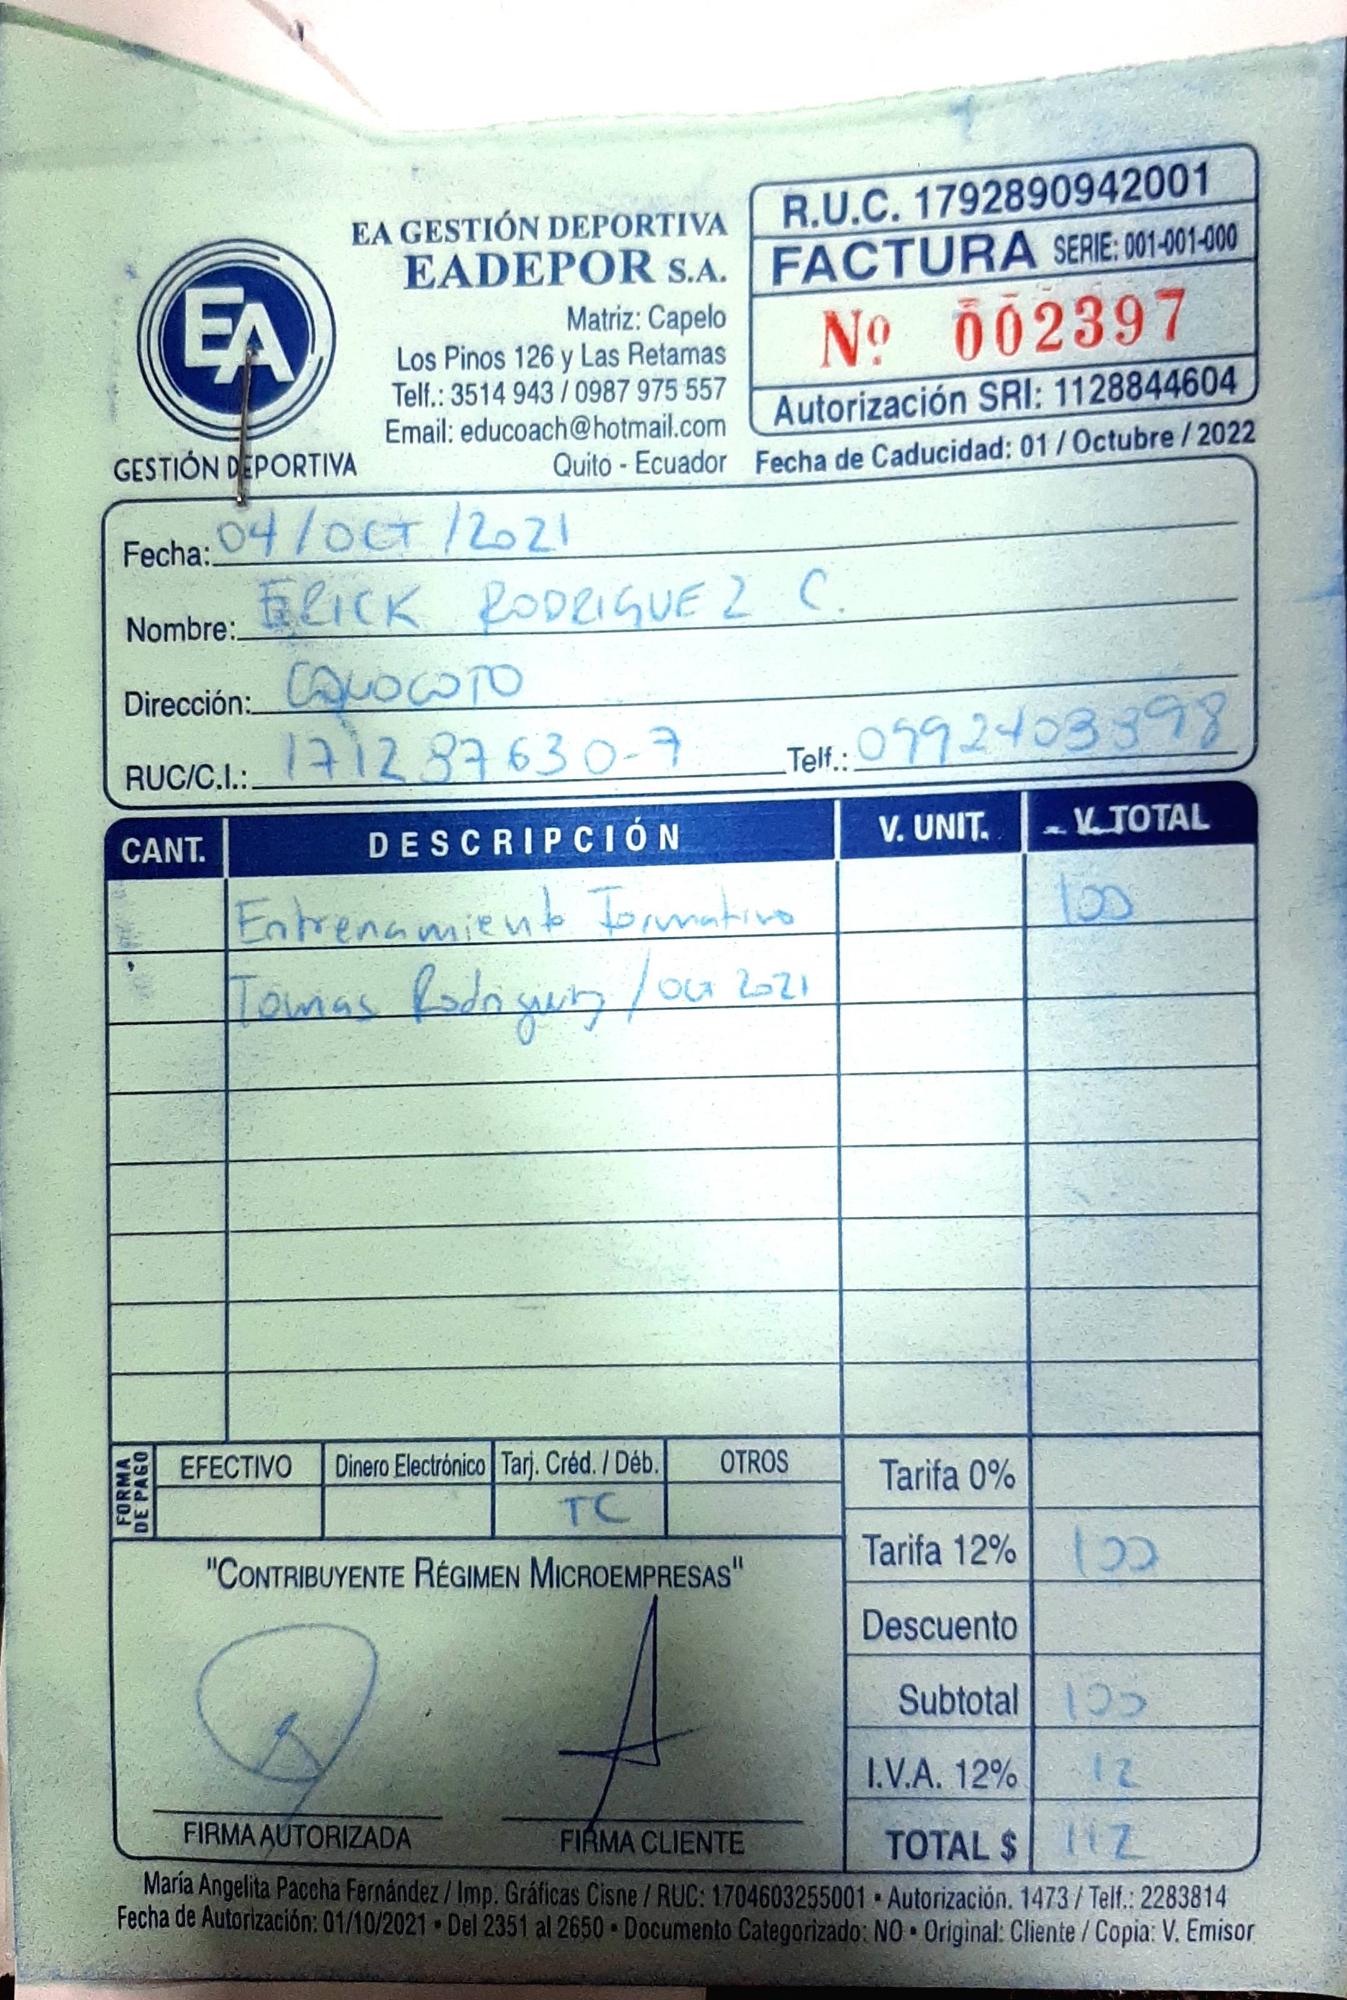 EA GESTIÓN DEPORTIVA
EADEPOR S.A.
Matriz: Capelo
Los Pinos 126 y Las Retamas
Telf.: 3514 943 / 0987 975 557
Email: educoach@hotmail.com
Quito - Ecuador
EA
GESTIÓN DEPORTIVA
R.U.C. 1792890942001
FACTURA SERIE: 001-001-000
Nº 002397
Autorización SRI: 1128844604
Fecha de Caducidad: 01 / Octubre / 2022
Fecha: 04/OCT/2021
Nombre: ERICK RODRIGUEZ C.
Dirección:
RUC/C.I.: 171287630-7 Telf.:
CANT. DESCRIPCIÓN V. UNIT. V. TOTAL
Entrenamiento Formativo 100
Tomas Rodriguez / oct 2021
FORMA DE PAGO
EFECTIVO Dinero Electrónico Tarj. Créd. / Déb. OTROS
TC
Tarifa 0%
Tarifa 12% 100
Descuento
Subtotal 100
I.V.A. 12% 12
TOTAL $ 112
"CONTRIBUYENTE RÉGIMEN MICROEMPRESAS"
FIRMA AUTORIZADA FIRMA CLIENTE
María Angelita Paccha Fernández / Imp. Gráficas Cisne / RUC: 1704603255001 • Autorización. 1473 / Telf.: 2283814
Fecha de Autorización: 01/10/2021 • Del 2351 al 2650 • Documento Categorizado: NO • Original: Cliente / Copia: V. Emisor